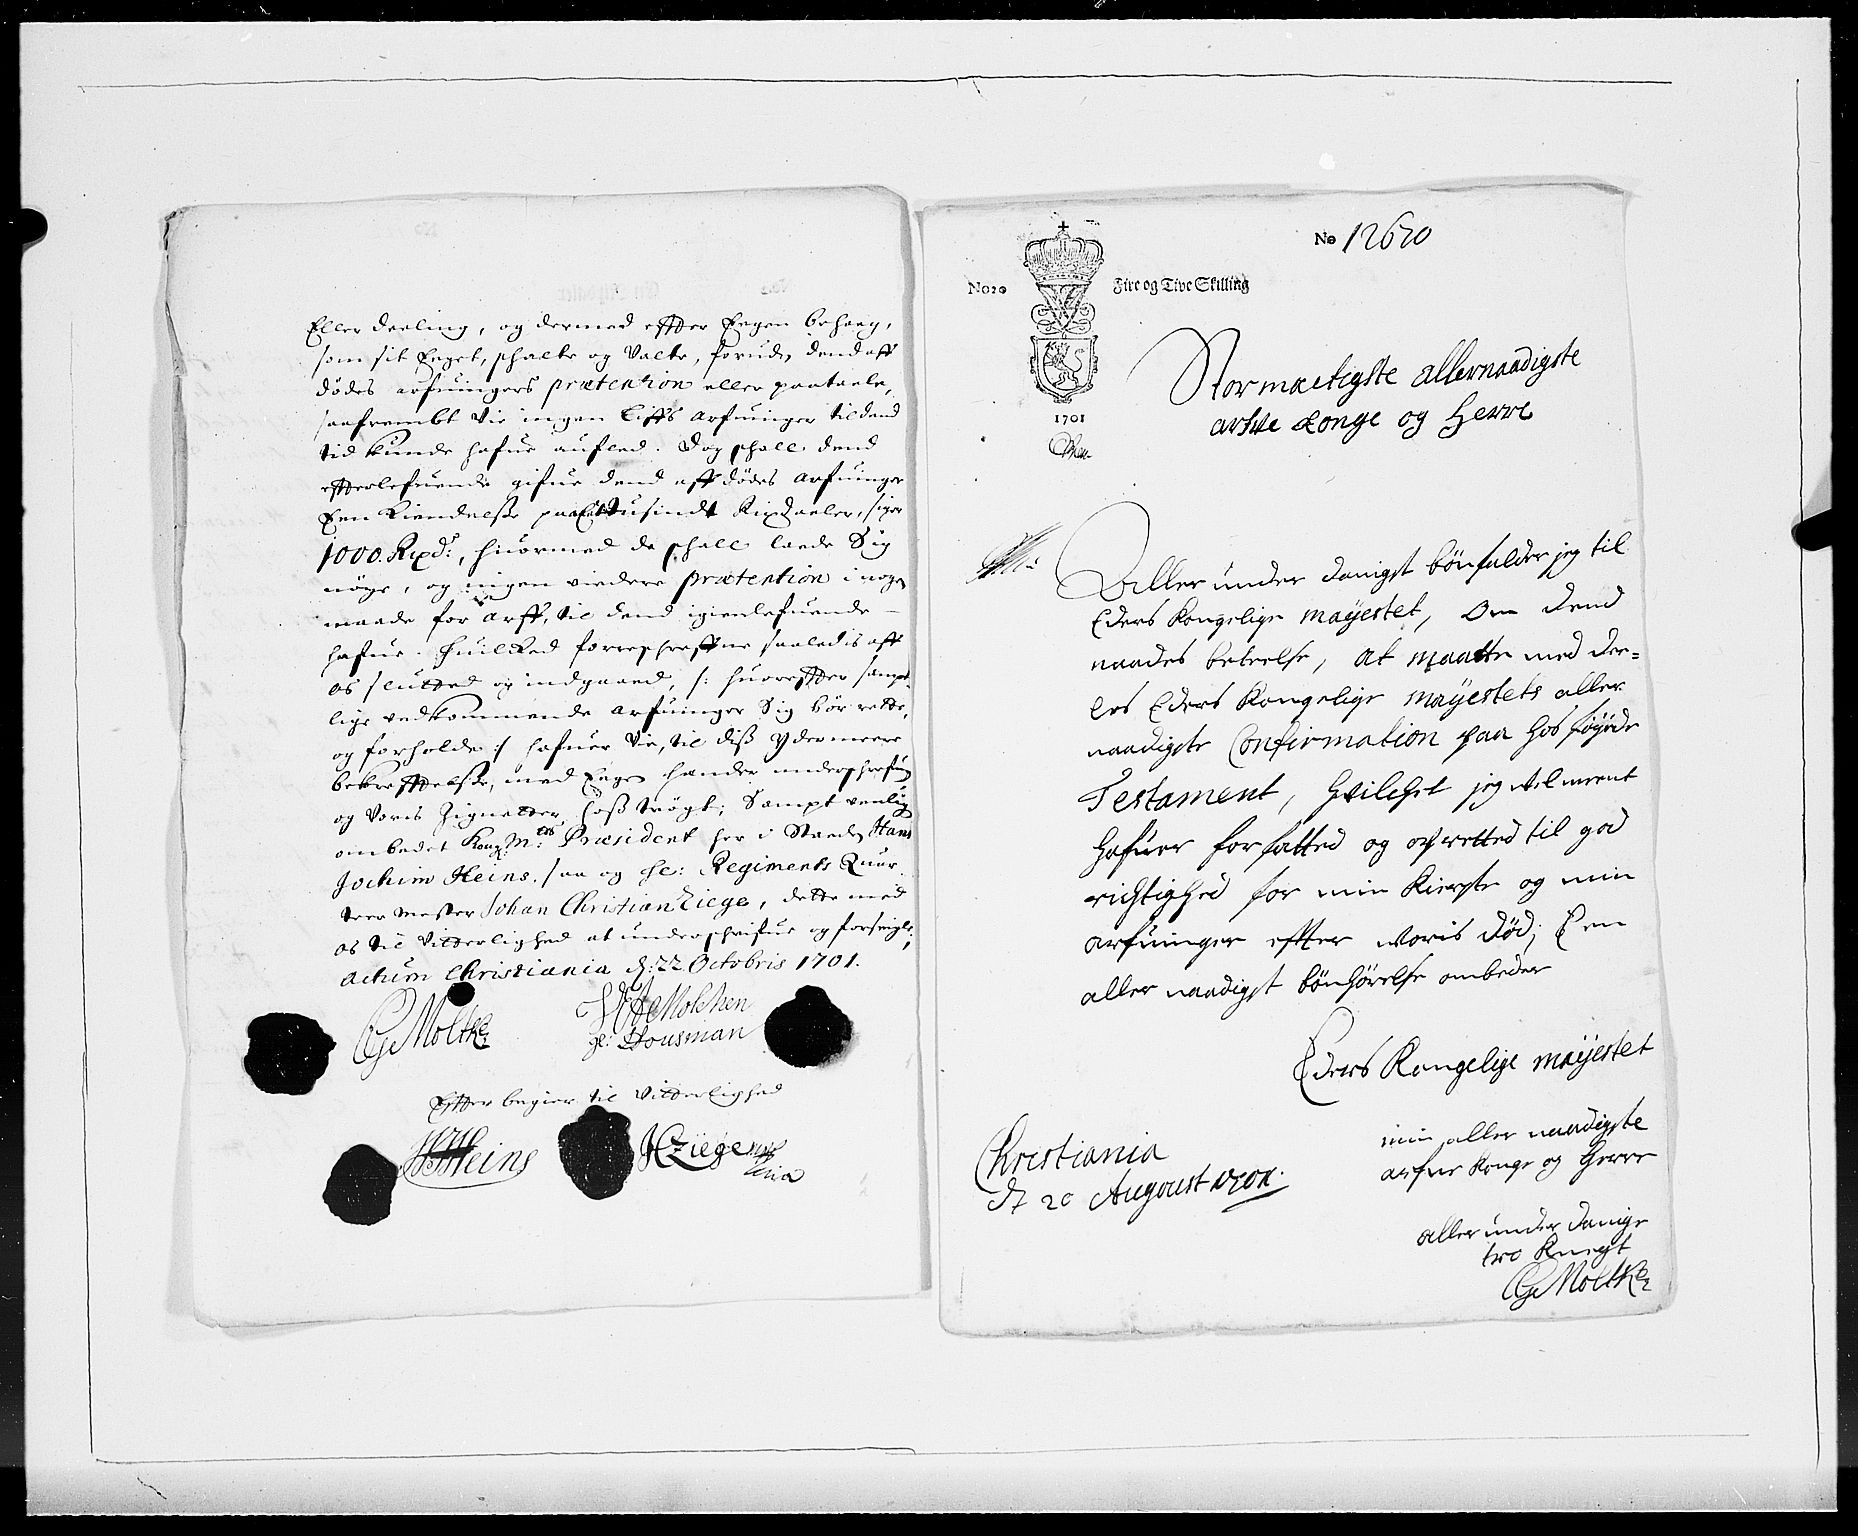 Eller deeling, og dermed effter Eegen behaag,
som sit Eeget, schalte og valte, foruden dend aff
dödes arfuingers prætention eller paatale,
saafrembt vie ingen Liffs arfuinger til dend
tid kunde hafue aufled. Dog schall dend
effterlefuende gifue dend aff dödes arfuinger
Een Kiendelsse paa Et tusinde Rixdaler, siger
1000. Rixd:, huormed de schall laede Sig
nöye, og ingen videre prætention i noge
maade for arff, til dend igienlefuende
hafue. Huilked forreschrefne saaledis aff
os slutted og indgaaed, /: huoreffter sampt-
lige vedkommende arfuinger Sig bör rette,
og forholde :/ hafuer vie, til diss ydermeere
bekrefftelsse, med Eegen hænder underschrefuen
og voris Zignetter hoss trögt; Sampt venlig
ombedet Kong: Mts: Præsident her i Staden Hans
Jochim Heins, saa og Hr: Regiments Quar-
teer Mester Johan Christian Ziege, dette med
os til vitterlighed at underschrifue og forseigle;
Actum Christiania d: 22 Octobris 1701.
CGMoltke
Molchen
ge: Housman
Effter begier til vitterlighed
HJHeins
JCZiege
No 12610
No 20
Fire og Tive Skilling
1701
Stormæctigste allernaadigste
arfve Konge og Herre
Aller under danigst bönfalder jeg til
Eders Kongelige mayestet, Om dend
naades beteelse, at maatte med dee-
les Eders Kongelige mayestets aller
naadigste Confirmation paa hos föyede
Testament, hvilchet jeg velment
hafuer forfatted og opretted til god
richtighed for min Kierste og min
arfuinger effter woris död; Een
aller naadigst bönhörelse ombeder
Eders Kongelige mayestet
min aller naadigste
arfue Konge og Herre
Christiania
dt 20 Augoust 1701.
aller under danige
tro Knegt
CGMoltke